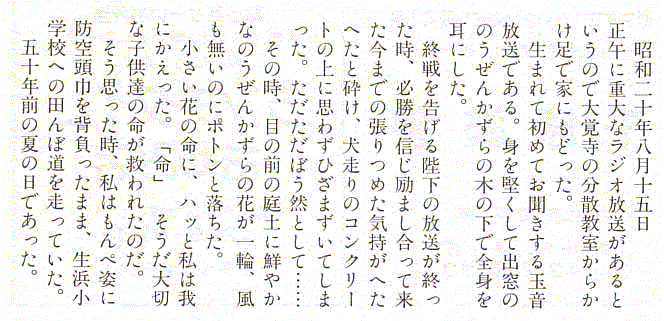 昭和二十年八月十五日
正午に重大なラジオ放送があると
いうので大覚寺の分散教室からか
け足で家にもどった。
生まれて初めてお聞きする玉音
放送である。身を堅くして出窓の
のうぜんかずらの木の下で全身を
耳にした。
終戦を告げる陛下の放送が終っ
た時、必勝を信じ励まし合って来
た今までの張りつめた気持がへた
へたと砕け、犬走りのコンクリー
トの上に思わずひざまずいてしま
った。ただただぼう然として……
その時、目の前の庭土に鮮やか
なのうぜんかずらの花が一輪、風
も無いのにポトンと落ちた。
小さい花の命に、ハッと私は我
にかえった。「命」　そうだ大切
な子供達の命が救われたのだ。
そう思った時、私はもんぺ姿に
防空頭巾を背負ったまま、生浜小
学校への田んぼ道を走っていた。
五十年前の夏の日であった。